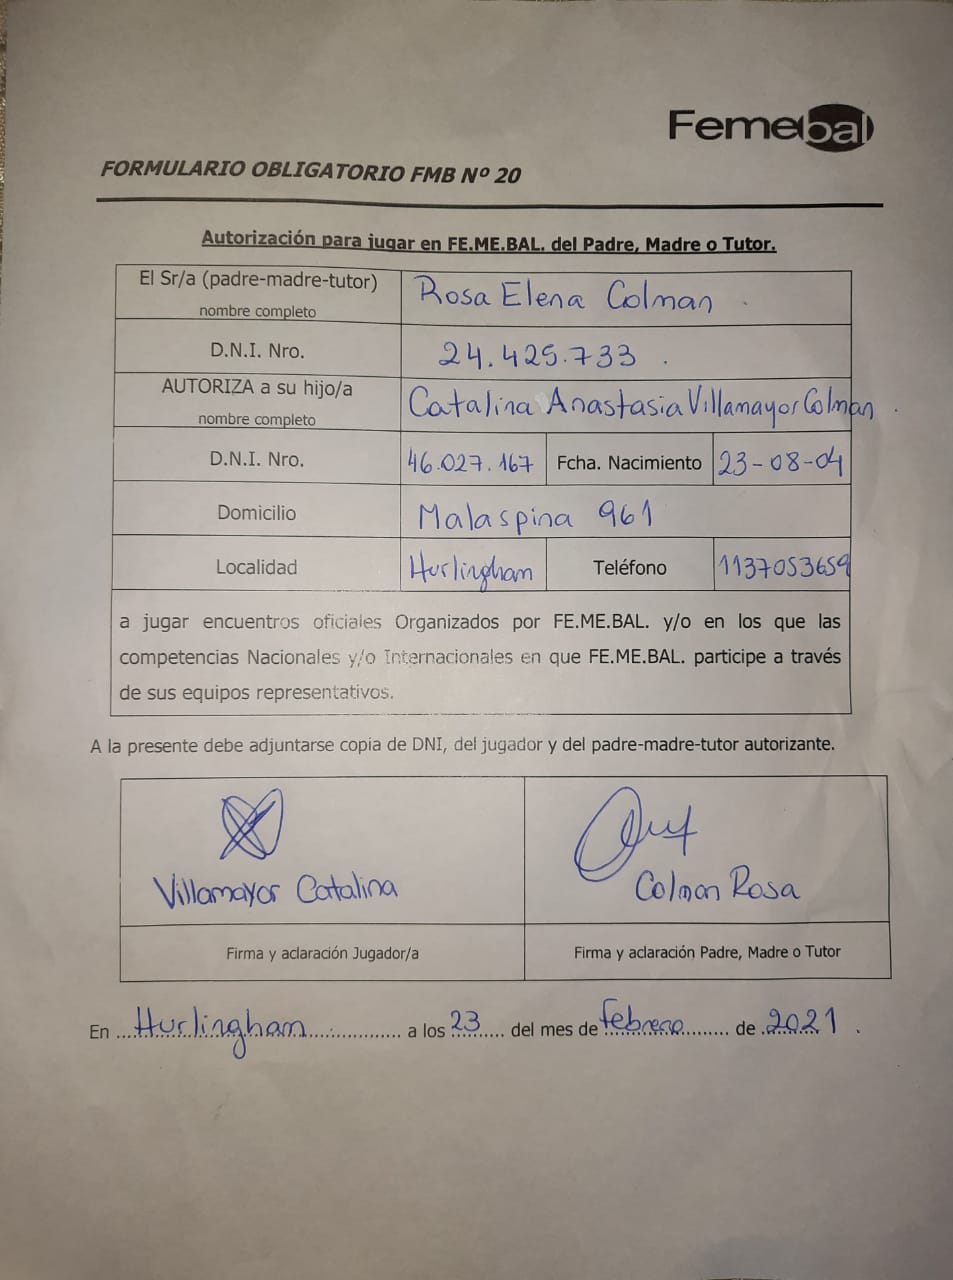 Femebal
FORMULARIO OBLIGATORIO FMB Nº 20
Autorización para jugar en FE.ME.BAL. del Padre, Madre o Tutor.
El Sr/a (padre-madre-tutor) Rosa Elena Colman
nombre completo
D.N.I. Nro. 24.425.733.
AUTORIZA a su hijo/a Catalina Anastasia Villamayor Colman.
nombre completo
D.N.I. Nro. 46.027.167 Fcha. Nacimiento 23-08-04
Domicilio Malaspina 961
Localidad Hurlingham Teléfono 1137053659
a jugar encuentros oficiales Organizados por FE.ME.BAL. y/o en los que las
competencias Nacionales y/o Internacionales en que FE.ME.BAL. participe a través
de sus equipos representativos.
A la presente debe adjuntarse copia de DNI, del jugador y del padre-madre-tutor autorizante.
Villamayor Catalina
Colman Rosa
Firma y aclaración Jugador/a
Firma y aclaración Padre, Madre o Tutor
En Hurlingham a los 23 del mes de febrero de 2021.